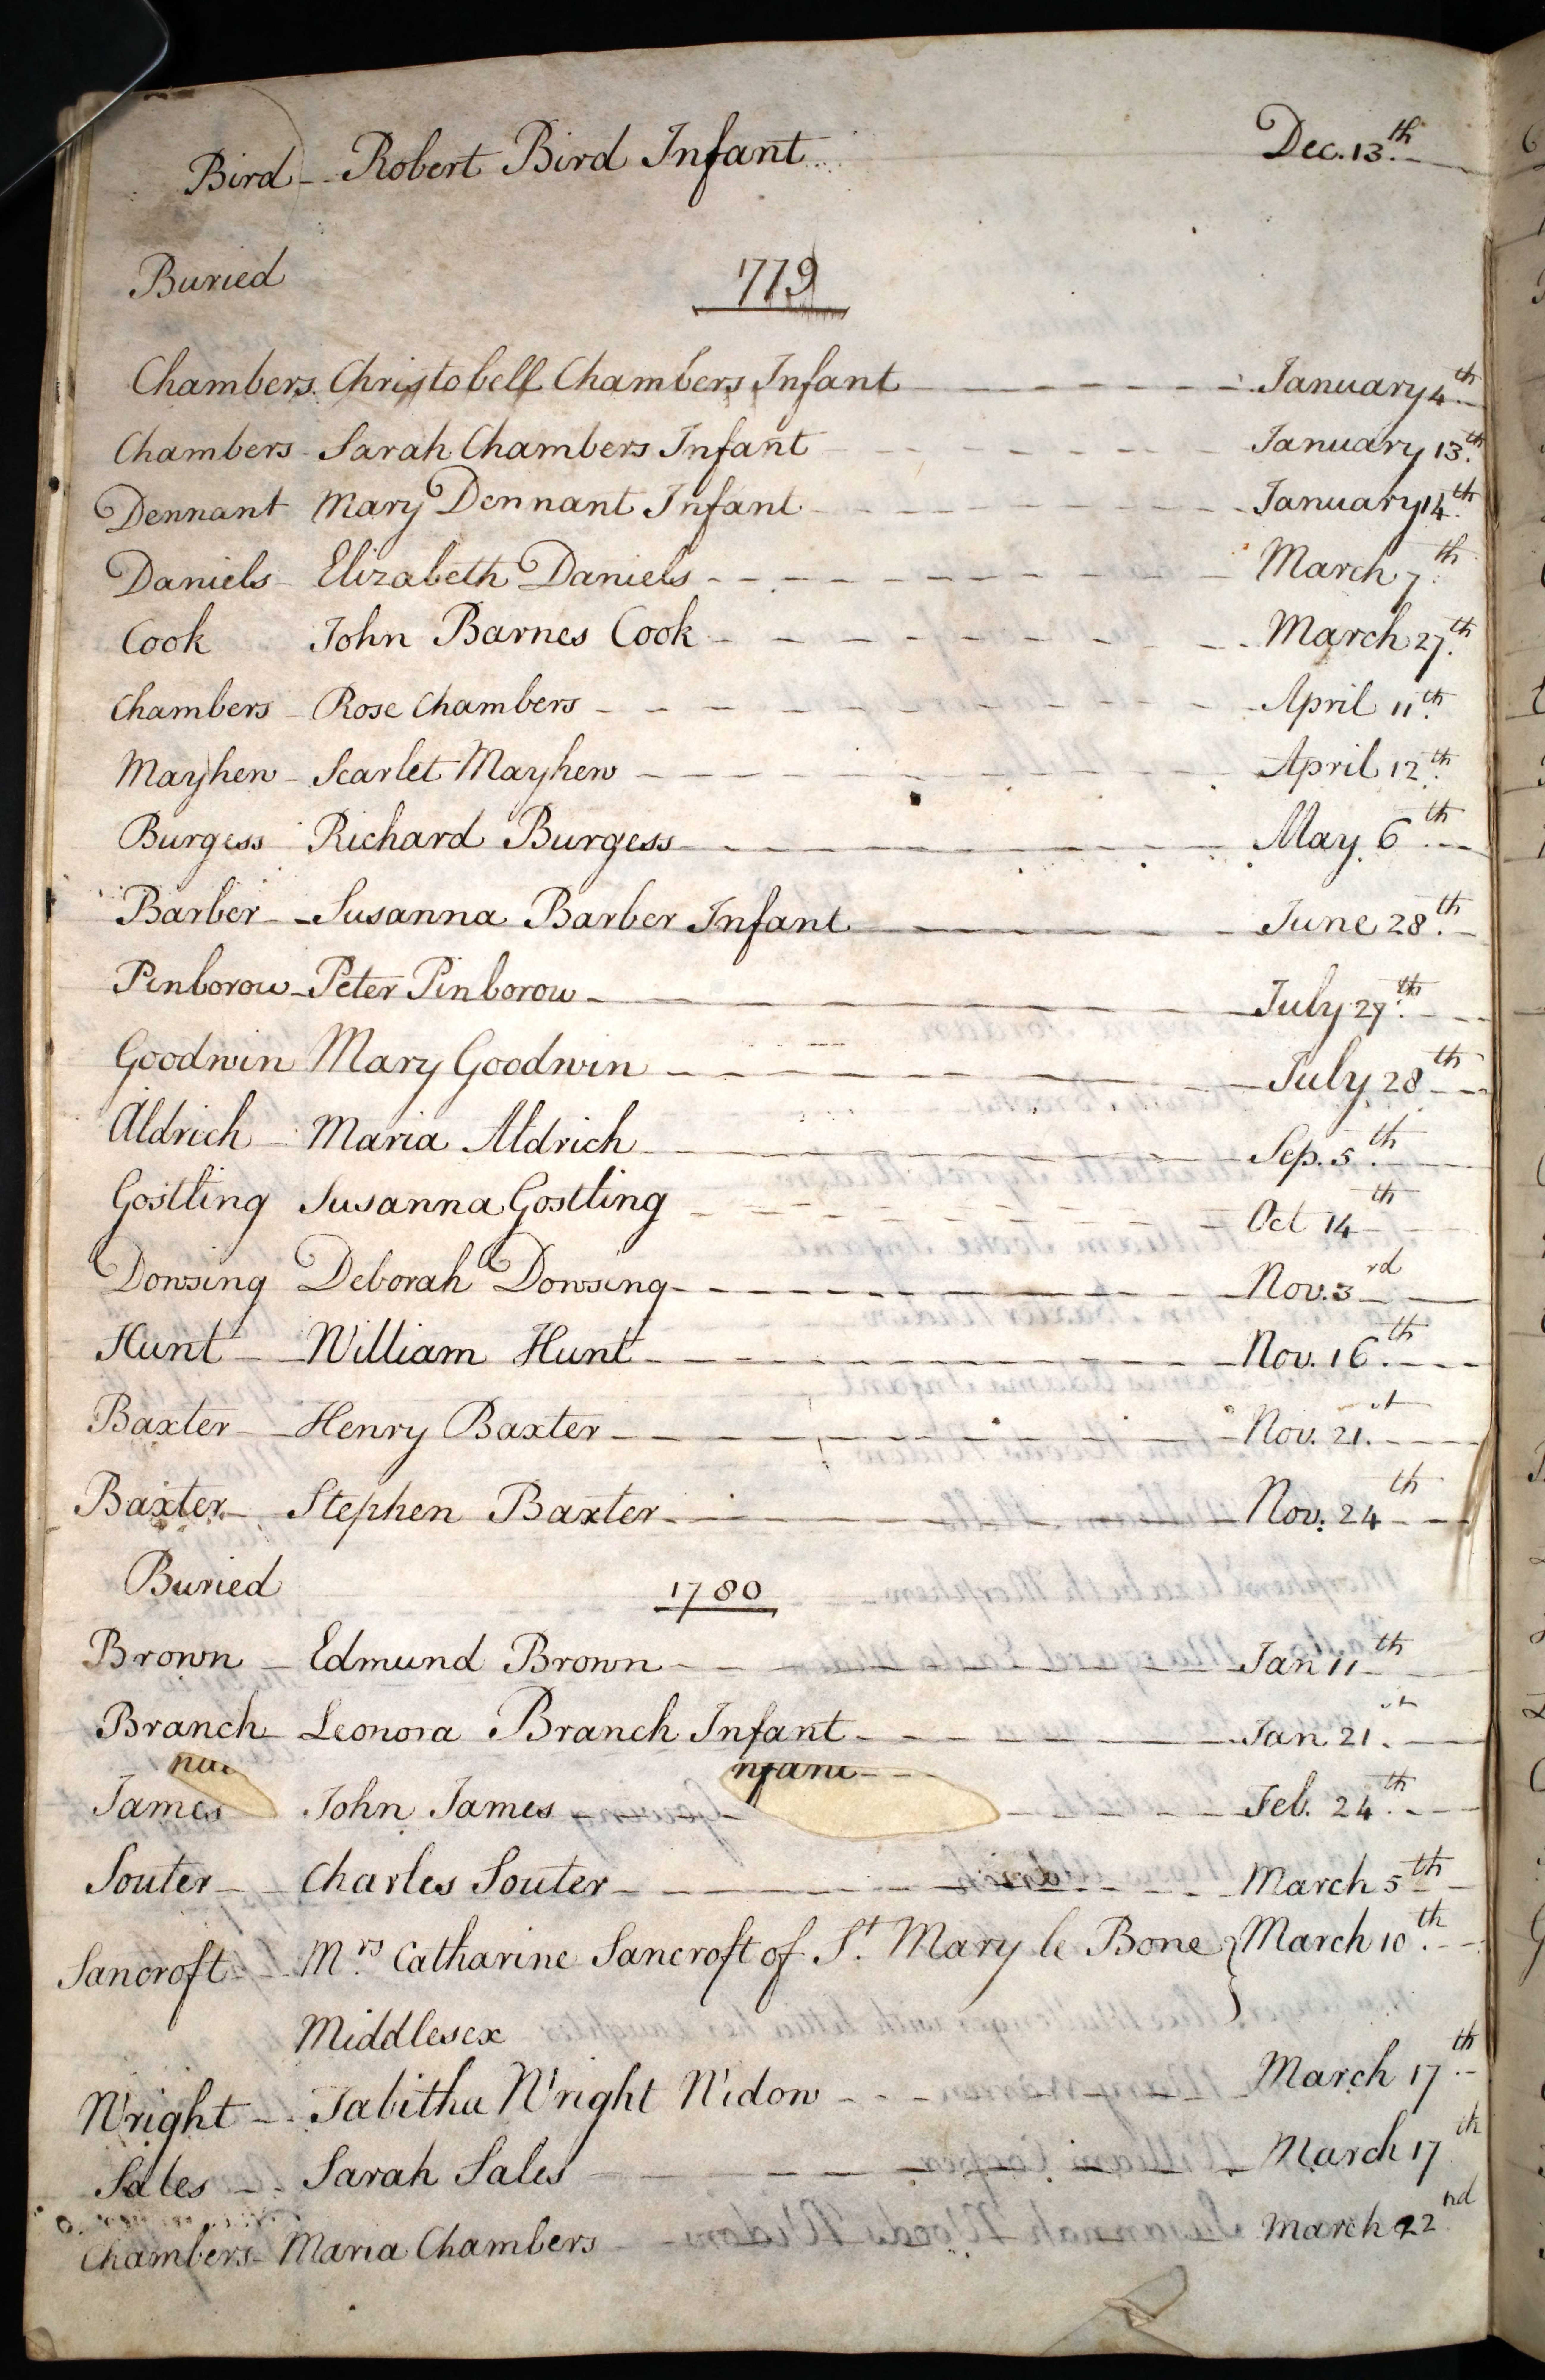 Bird - Robert Bird Infant Dec. 13th
Buried 1779
Chambers Christobell Chambers Infant January 4th
Chambers Sarah Chambers Infant January 13th
Dennant Mary Dennant Infant January 14th
Daniels Elizabeth Daniels March 7th
Cook John Barnes Cook March 27th
Chambers Rose Chambers April 11th
Mayhew Scarlet Mayhew April 12th
Burgess Richard Burgess May 6th
Barber Susanna Barber Infant June 28th
Pinborow Peter Pinborow July 27th
Goodwin Mary Goodwin July 28th
Aldrich Maria Aldrich Sep. 5th
Gostling Susanna Gostling Oct 14th
Dowsing Deborah Dowsing Nov. 3rd
Hunt William Hunt Nov. 16th
Baxter Henry Baxter Nov. 21st
Baxter Stephen Baxter Nov. 24th
Buried 1780
Brown Edmund Brown Jan 11th
Branch Leonora Branch Infant Jan 21st
James John James Feb. 24th
Souter Charles Souter March 5th
Sancroft Mrs Catharine Sancroft of St. Mary le Bone March 10th
Middlesex
Wright Tabitha Wright Widow March 17th
Sales Sarah Sales March 17th
Chambers Maria Chambers March 22nd